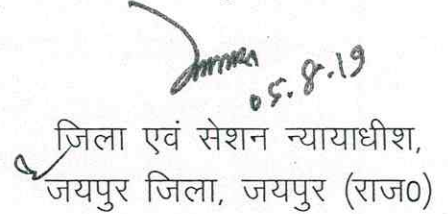 05.8.19
जिला एवं सेशन न्यायाधीश,
जयपुर जिला, जयपुर (राज0)